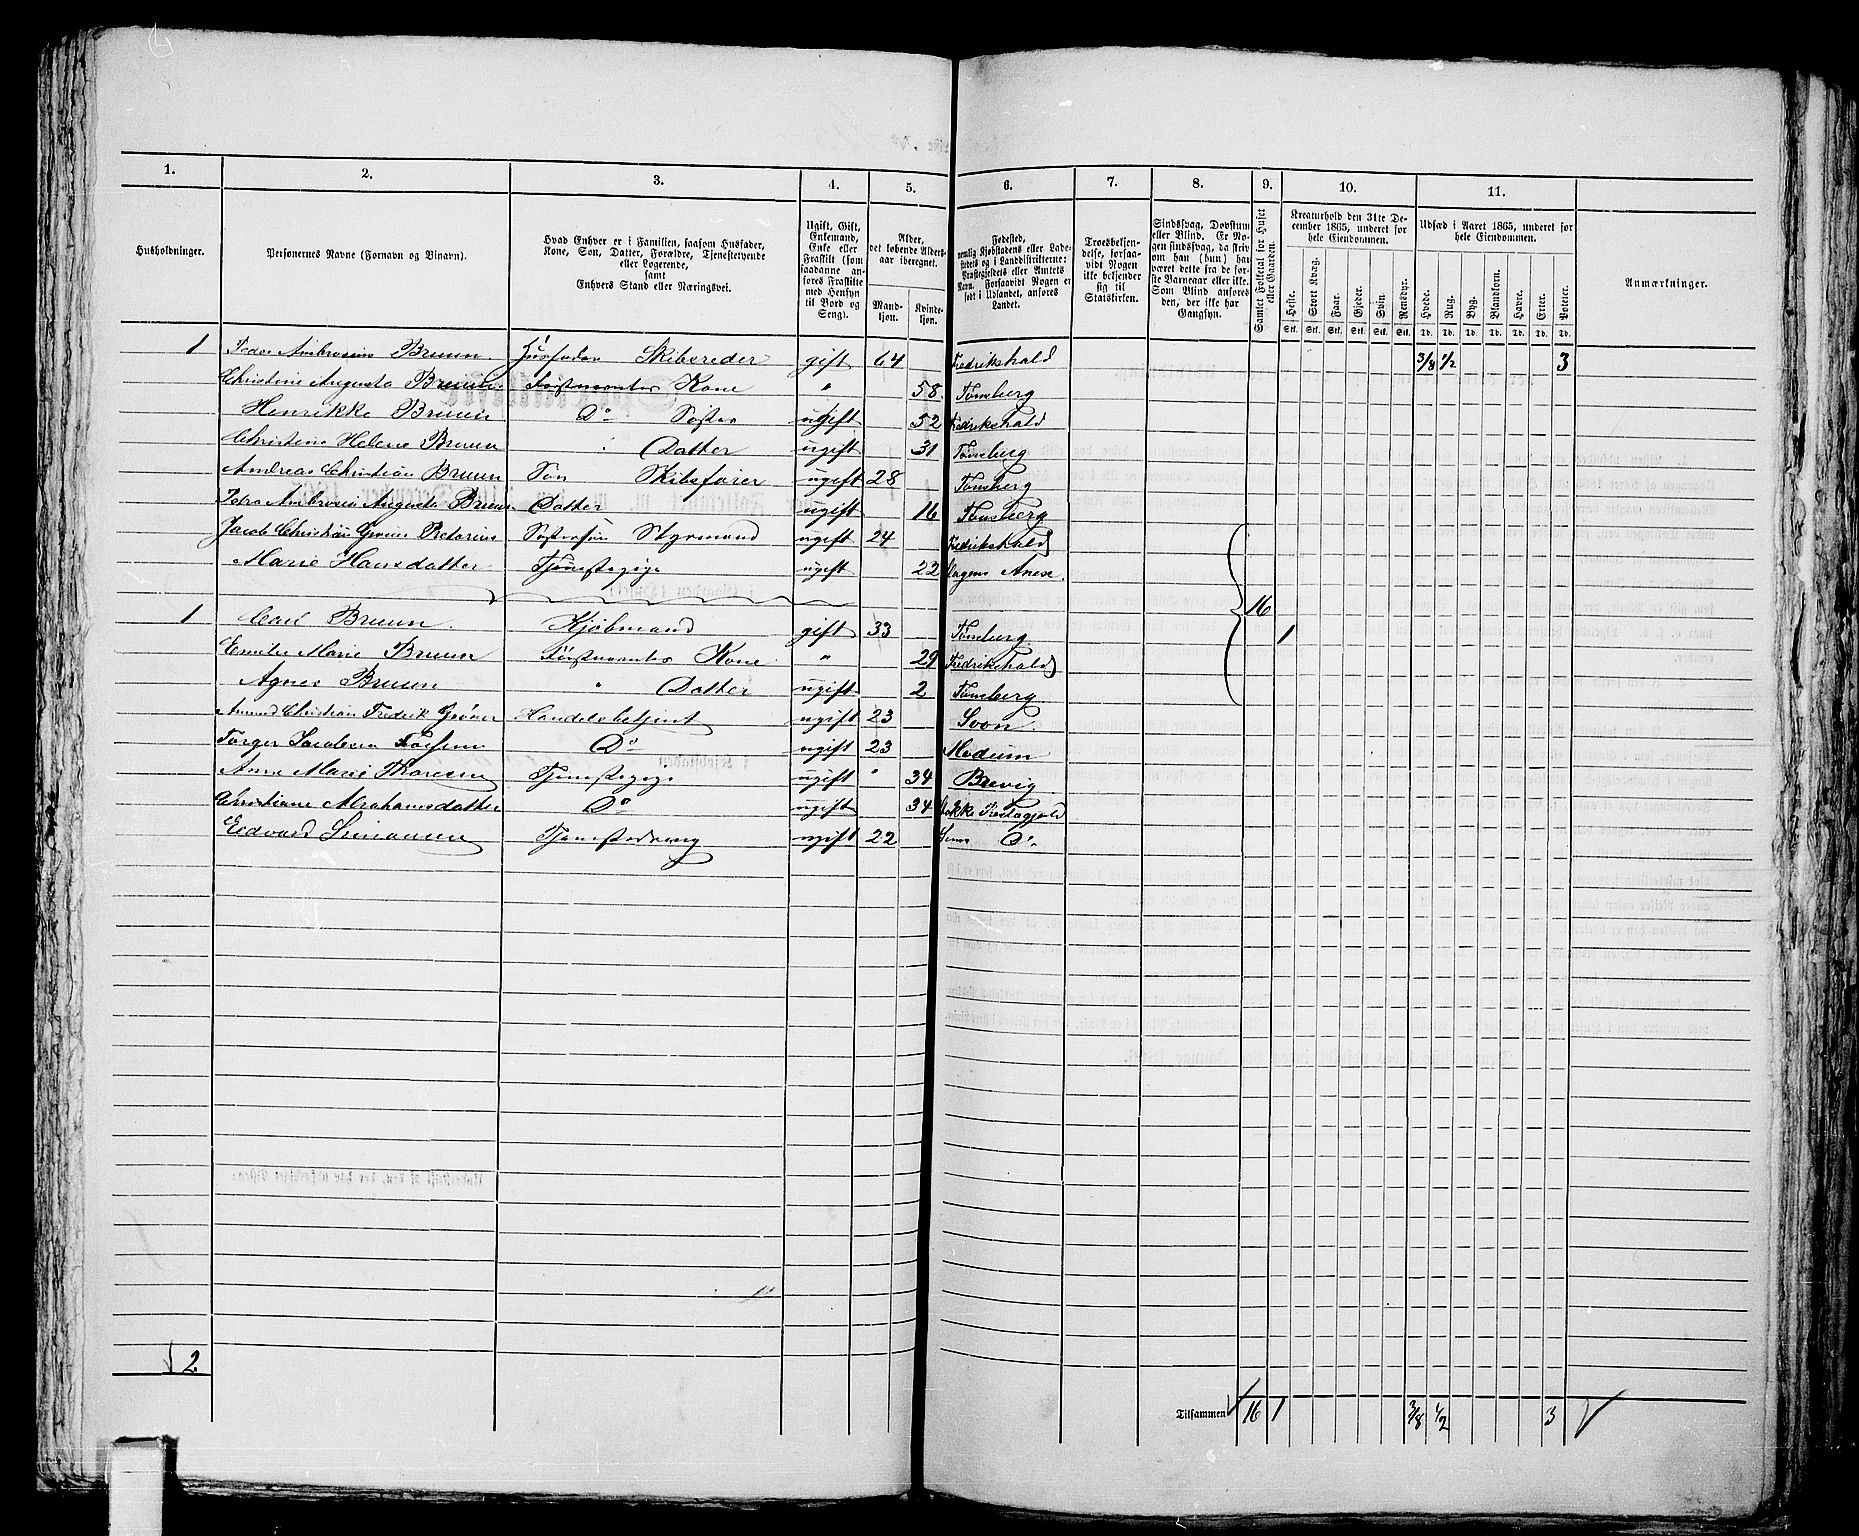 1. 2. 3. 4. 5. 6. 7. 8. 9. 10. 11.
Husholdninger.
Personernes Navne (Fornavn og Binavn).
Hvad Enhver er i Familien, saasom Husfader, Kone, Søn, Datter, Forældre, Tjenestetyende eller Logerende, samt Enhvers Stand eller Næringsvei.
Ugift, Gift, Enkemand, Enke eller Fraskilt (som saadanne anføres Fraskilte med Hensyn til Bord og Seng).
Alder, det løbende Alders-aar iberegnet.
Mand-kjøn. Kvinde-kjøn.
Fødested, nemlig Kjøbstadens eller Ladestedets og i Landdistrikterne: Præstegjeldets eller Amtets Navn. Forsaavidt Nogen er født i Udlandet, anføres Landet.
Troesbekjendelse, forsaavidt Nogen ikke bekjender sig til Statskirken.
Sindssvag, Døvstum eller Blind. Er Nogen sindssvag, da skrives om han (hun) har været dette fra de første Barneaar eller ikke. Som Blind ansøres den, der ikke har Gangsyn.
Samlet Folketal for Huset eller Gaarden.
Kreaturhold den 31te December 1865, underet for hele Eiendommen.
Heste. Stort Kvæg. Faar. Gjeder. Svin. Rensdyr.
Stk. Stk. Stk. Stk. Stk. Stk.
Udsæd i Aaret 1865, underet for hele Eiendommen.
Hvede. Rug. Byg. Blandkorn. Havre. Erter. Poteter.
Td. Td. Td. Td. Td. Td. Td.
Anmærkninger.
1 Peder Ambrosius Bruun Husfader Skibsreder gift 64 Fredrikshald 3/8 1/2 3
Christine Augusta Bruun Forstnævntes Kone " 58 Tønsberg
Henrikke Bruun Do Søster ugift 52 Fredrikshald
Christine Helene Bruun " Datter ugift 31 Tønsberg
Andreas Christian Bruun Søn Skibsfører ugift 28 Tønsberg
Petra Ambrosia Augusta Bruun Datter ugift 16 Tønsberg
Jacob Christian Grøner Pretorius Søstersøn Styrmand ugift 24 Fredrikshald
Marie Hansdatter Tjenestepige ugift 22 Slagens Anex
16
1 Carl Bruun Kjøbmand gift 33 Tønsberg 1
Emilie Marie Bruun Forstnævntes Kone " 29 Fredrikshald
Agnes Bruun " Datter ugift 2 Tønsberg
Amund Christian Fredrik Grøner Handelsbetjent ugift 23 Soon
Torger Jacobsen Do ugift 23 Modum
Anne Marie Thoresen Tjenestepige ugift " 34 Brevig
Christiane Abrahamsdatter Do ugift 34 Stokke Prestegjeld
Edvard Simonsen Tjenestedreng ugift 22 Sems Do
2
Tilsammen 16 1 3/8 1/2 3